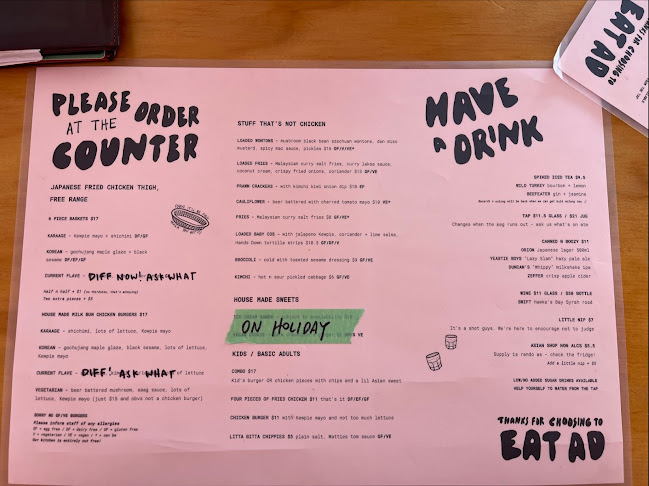 PLEASE ORDER
AT THE
COUNTER
JAPANESE FRIED CHICKEN THIGH,
FREE RANGE
6 PIECE BASKETS $17
KARAAGE - Kewpie mayo + shichimi DF/GF
KOREAN - gochujang maple glaze + black
sesame DF/EF/GF
CURRENT FLAVE - DIFF NOW! ASK WHAT
Half n Half + $1
Two extra pieces + $5
HOUSE MADE MILK BUN CHICKEN BURGERS $17
KARAAGE - shichimi, lots of lettuce, Kewpie mayo
KOREAN - gochujang maple glaze, black sesame, lots of lettuce,
Kewpie mayo
CURRENT FLAVE - DIFF! ASK WHAT of lettuce
VEGETARIAN - beer battered mushroom, kaag sauce, lots of
lettuce, Kewpie mayo (just $16 and obvs not a chicken burger)
SORRY NO GF/VE BURGERS
Please inform staff of any allergies
EF = egg free / DF = dairy free / GF = gluten free
V = vegetarian / VE = vegan / * = can be
Our kitchen is entirely nut free!
STUFF THAT'S NOT CHICKEN
LOADED WONTONS - mushroom black bean szechuan wontons, dan miso
mustard, spicy mac sauce, pickles $16 DF/V/VE*
LOADED FRIES - Malaysian curry salt fries, curry laksa sauce,
coconut cream, crispy fried onions, coriander $15 GF/VE
PRAWN CRACKERS - with kimchi kiwi onion dip $10 EF
CAULIFLOWER - beer battered with charred tomato mayo $10 VE*
FRIES - Malaysian curry salt fries $8 GF/VE*
LOADED BABY COS - with jalapeno Kewpie, coriander + lime salsa,
Hands Down tortilla strips $10.5 GF/DF/V
BROCCOLI - cold with toasted sesame dressing $9 GF/VE
KIMCHI - hot n sour pickled cabbage $6 GF/VE
HOUSE MADE SWEETS
ON HOLIDAY
VE
KIDS / BASIC ADULTS
COMBO $17
Kid's burger OR chicken pieces with chips and a lil Asian sweet
FOUR PIECES OF FRIED CHICKEN $11 that's it DF/EF/GF
CHICKEN BURGER $11 with Kewpie mayo and not too much lettuce
LITTA BITTA CHIPPIES $5 plain salt, Watties tom sauce GF/VE
HAVE
A DRINK
SPIKED ICED TEA $9.5
WILD TURKEY bourbon + lemon
BEEFEATER gin + jasmine
TAP $11.5 GLASS / $21 JUG
Changes when the keg runs out - ask us what's on atm
CANNED N BOOZY $11
ORION Japanese lager 500ml
YEASTIE BOYS "Lazy Slam" hazy pale ale
DUNCAN'S 'Whippy' milkshake ipa
ZEFFER crisp apple cider
WINE $11 GLASS / $50 BOTTLE
SWIFT Hawke's Bay Syrah rosé
LITTLE NIP $7
It's a shot guys. We're here to encourage not to judge
ASIAN SHOP NON ALCS $5.5
Supply is rando as - check the fridge!
Add a little nip + $5
LOW/NO ADDED SUGAR DRINKS AVAILABLE
HELP YOURSELF TO WATER FROM THE TAP
THANKS FOR CHOOSING TO
EAT AD
THANKS FOR CHOOSING TO
EAT AD